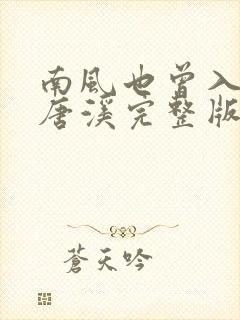 南風也曾入
唐溪完整版
蒼天吟